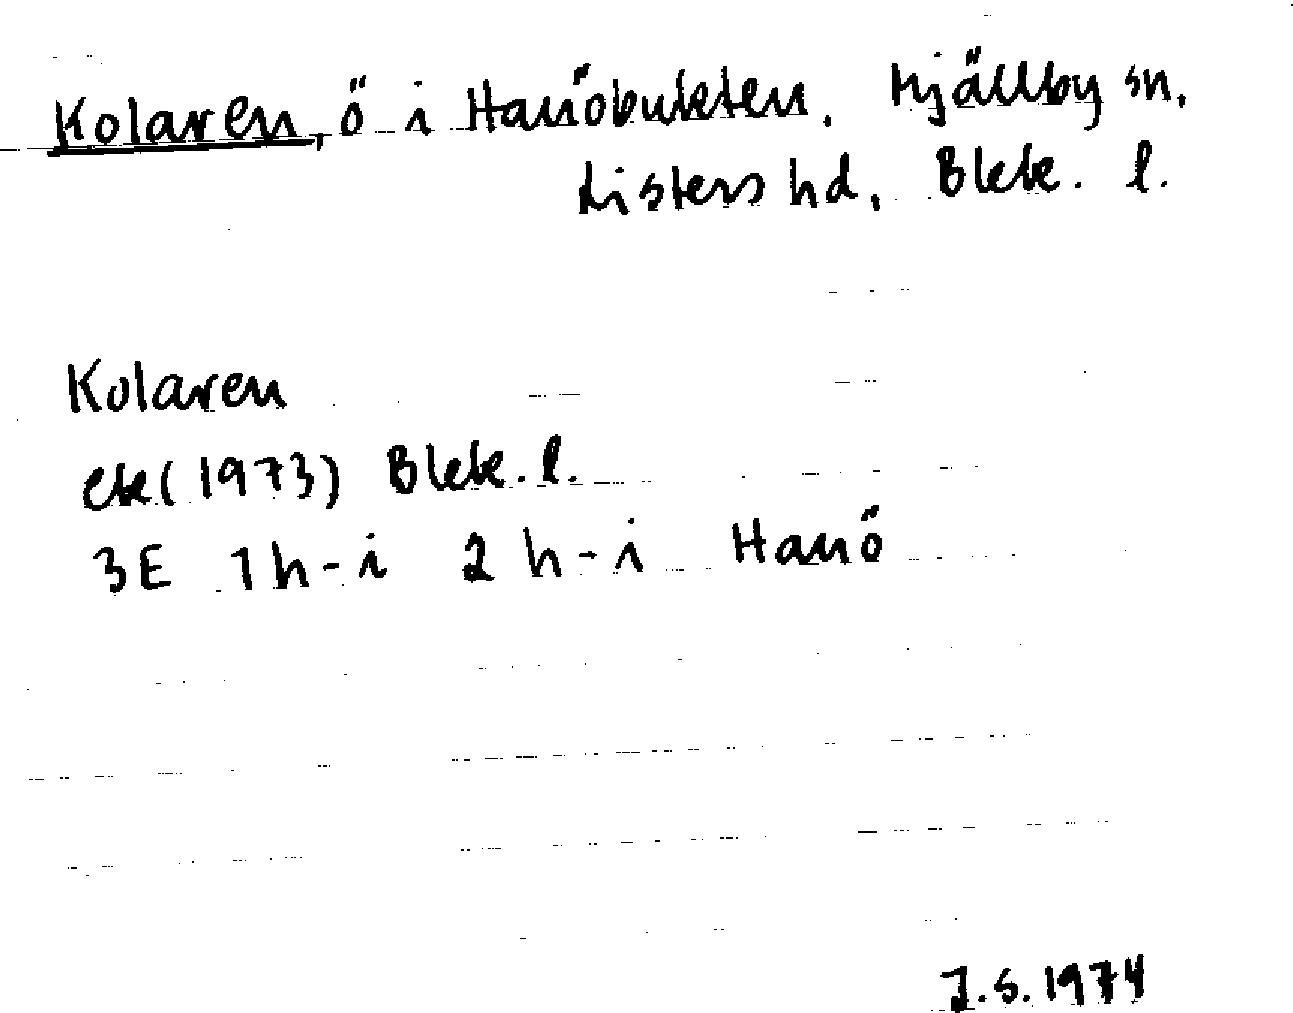 Kolaren, ö i Hanöbukten. Mjällby sn,
Listers hd, Blek. l.
Kolaren
ek (1973) Blek. l.
3E 1h-i 2h-i Hanö
J.S. 1974